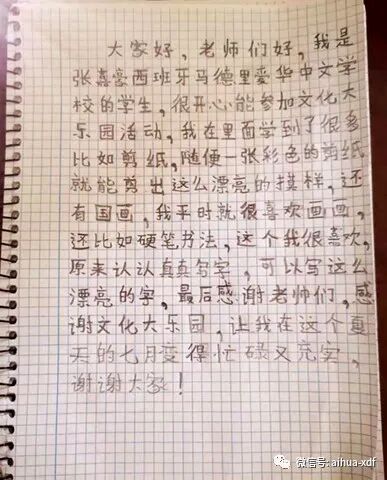 大家好，老师们好，我是
张嘉豪西班牙马德里爱华中文学
校的学生，很开心能参加文化大
乐园活动，我在里面学到了很多
比如剪纸，随便一张彩色的剪纸
就能剪出这么漂亮的摸样，还
有国画，我平时就很喜欢画画，
还比如硬笔书法，这个我很喜欢，
原来认认真真写字，可以写这么
漂亮的字，最后感谢老师们，感
谢文化大乐园，让我在这个夏
天的七月变得忙碌又充实，
谢谢大家！
微信号: aihua-xdf